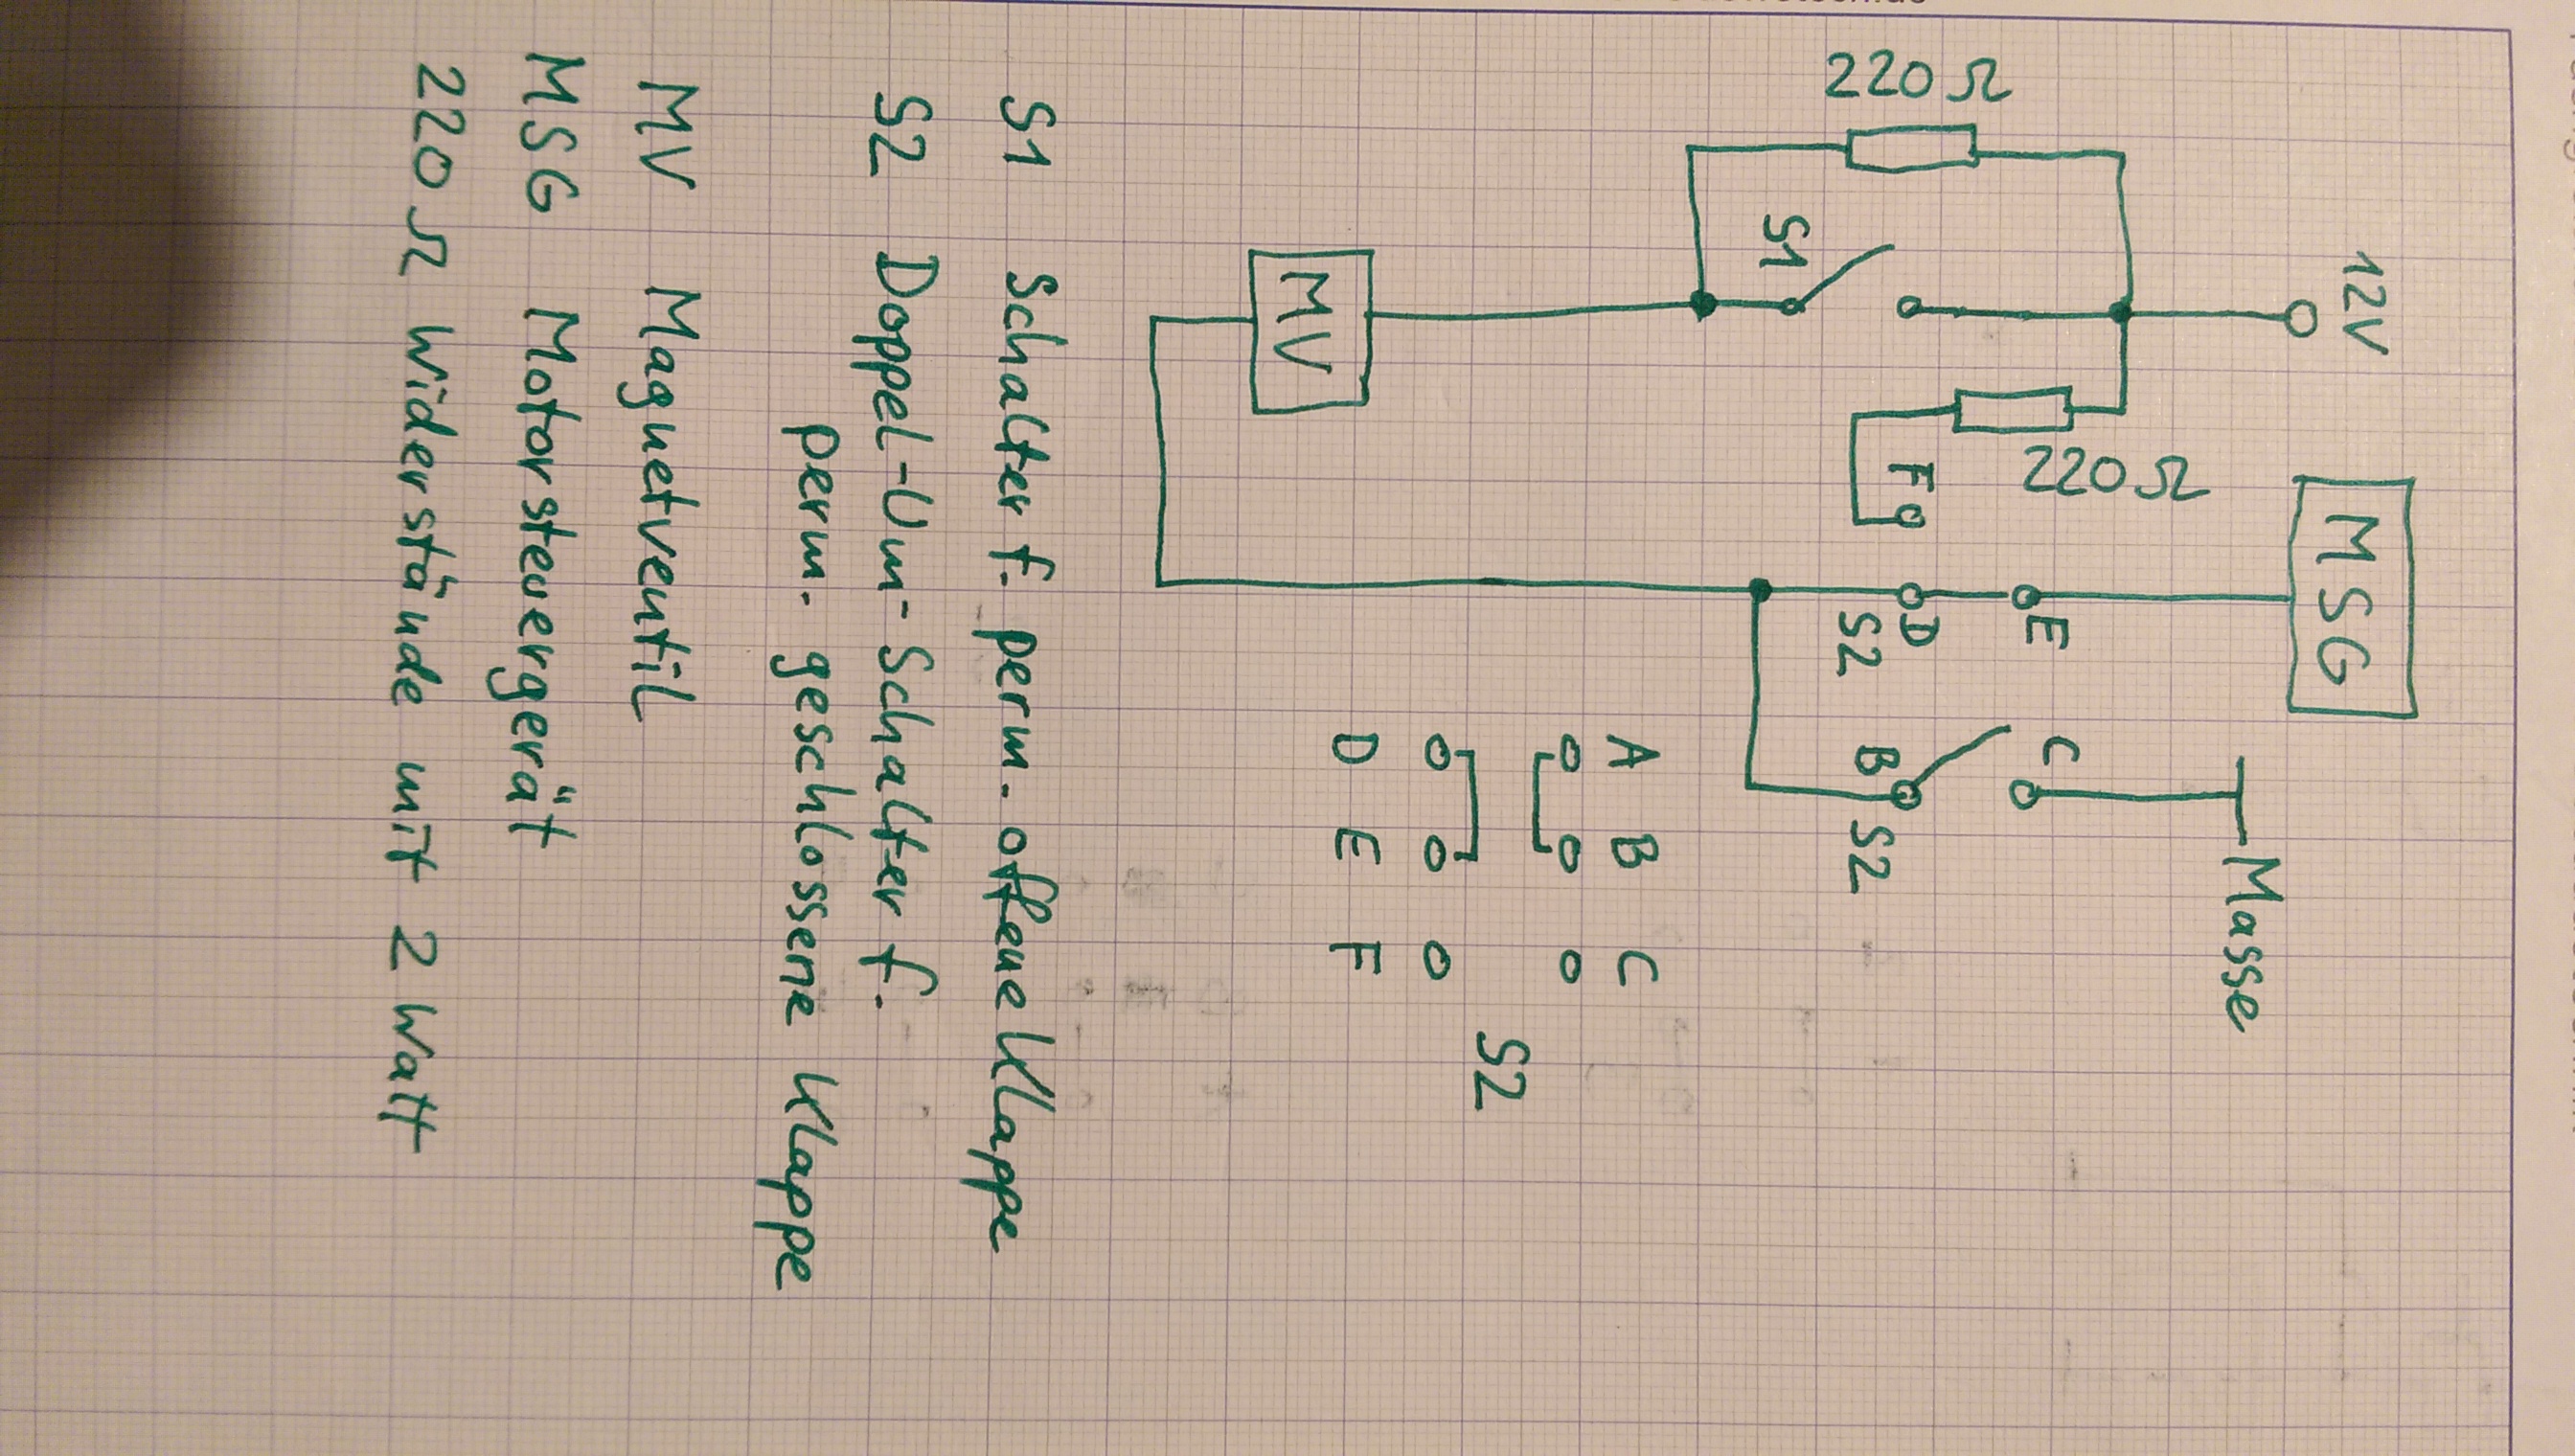 12V
MSG
Masse
220 Ω
220 Ω
S1
F
E
D
S2
C
B
S2
MV
A B C
S2
D E F
S1 Schalter f. perm. offene Klappe
S2 Doppel-Um-Schalter f.
perm. geschlossene Klappe
MV Magnetventil
MSG Motorsteuergerät
220Ω Widerstände mit 2 Watt